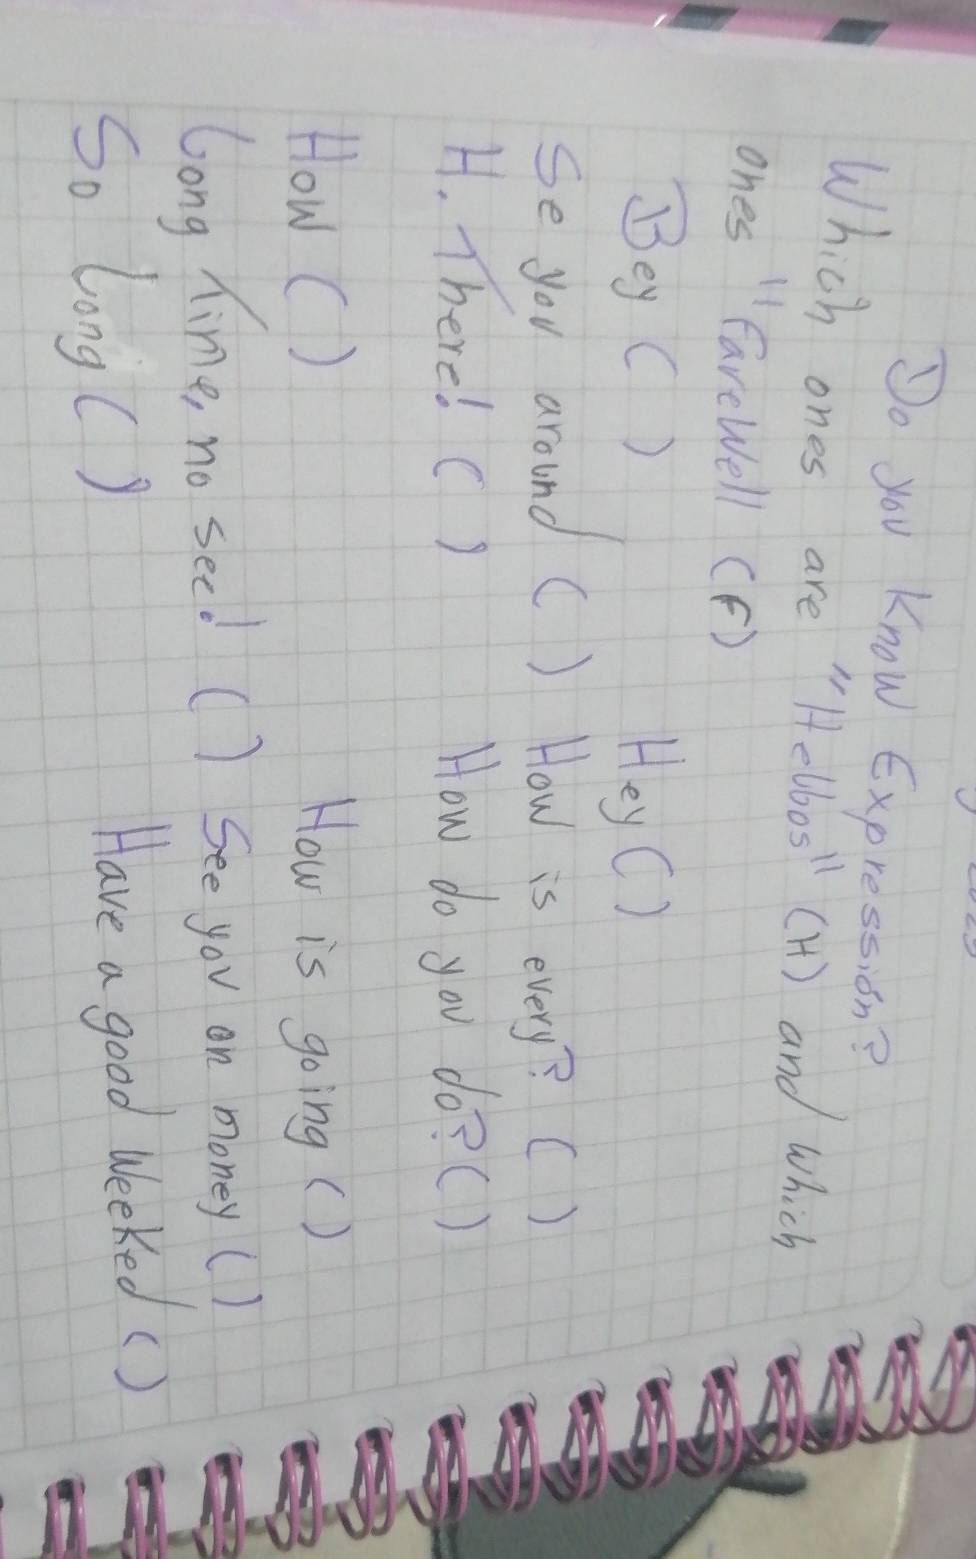 Do you Know Expressión?
Which ones are "Hellos" (H) and which
ones "Farewell (F)
Bey ( ) Hey ( )
Se you around ( ) How is every? ( )
H. There! ( ) How do you do? ( )
How ( ) How is going ( )
Long Time, no see! ( ) See you on money ( )
So Long ( ) Have a good Weeked ( )